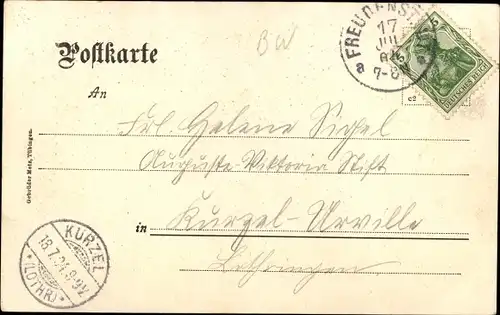 Postkarte
BW
FREUDENST
17
JUL
7-8
a
5
DEUTSCHES REICH
An
Frl. Helene Sigel
Auguste-Viktoria Stift
in Kurzel-Urville
Lothringen
Gebrüder Metz, Tübingen.
KURZEL
18.7.04.8-9V.
*(LOTHR)*